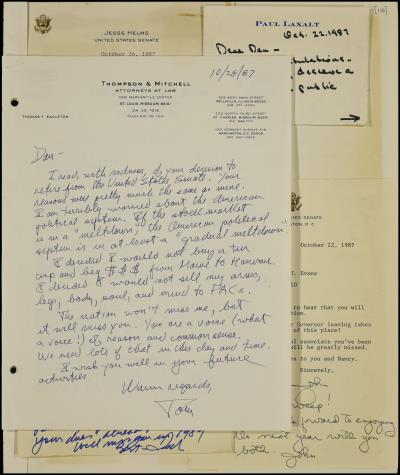 JESSE HELMS
UNITED STATES SENATE
October 26, 1987
PAUL LAXALT
Oct. 22, 1987
Dear Dan -
deserve a
public
THOMPSON & MITCHELL
ATTORNEYS AT LAW
ONE MERCANTILE CENTER
ST. LOUIS, MISSOURI 63101
THOMAS F. EAGLETON
525 WEST MAIN STREET
BELLEVILLE, ILLINOIS
200 NORTH THIRD STREET
ST. CHARLES, MISSOURI
WASHINGTON, D.C.
10/28/87
Dan -
I read, with sadness, of your decision to
retire from the United States Senate. Your
reasons were pretty much the same as mine.
I am terribly worried about the American
political system. If the stock market
is in a "meltdown", the American political
system is in at least a "gradual meltdown".
I decided I would not buy a tin
cup and beg $$$ from Maine to Hawaii.
I decided I would not sell my arms,
legs, body, soul, and mind to PACs.
The nation won't miss me, but
it will miss you. You are a voice (what
a voice!) of reason and common sense.
We need lots of that in this day and time.
I wish you well in your future
activities.
Warm regards,
Tom
SENATE
October 22, 1987
. Evans
to hear that you will
Governor leaving takes
of this place!
associate you've been
will be greatly missed.
es to you and Nancy.
Sincerely,
John
forward to enjoying
the next year with you
both. John